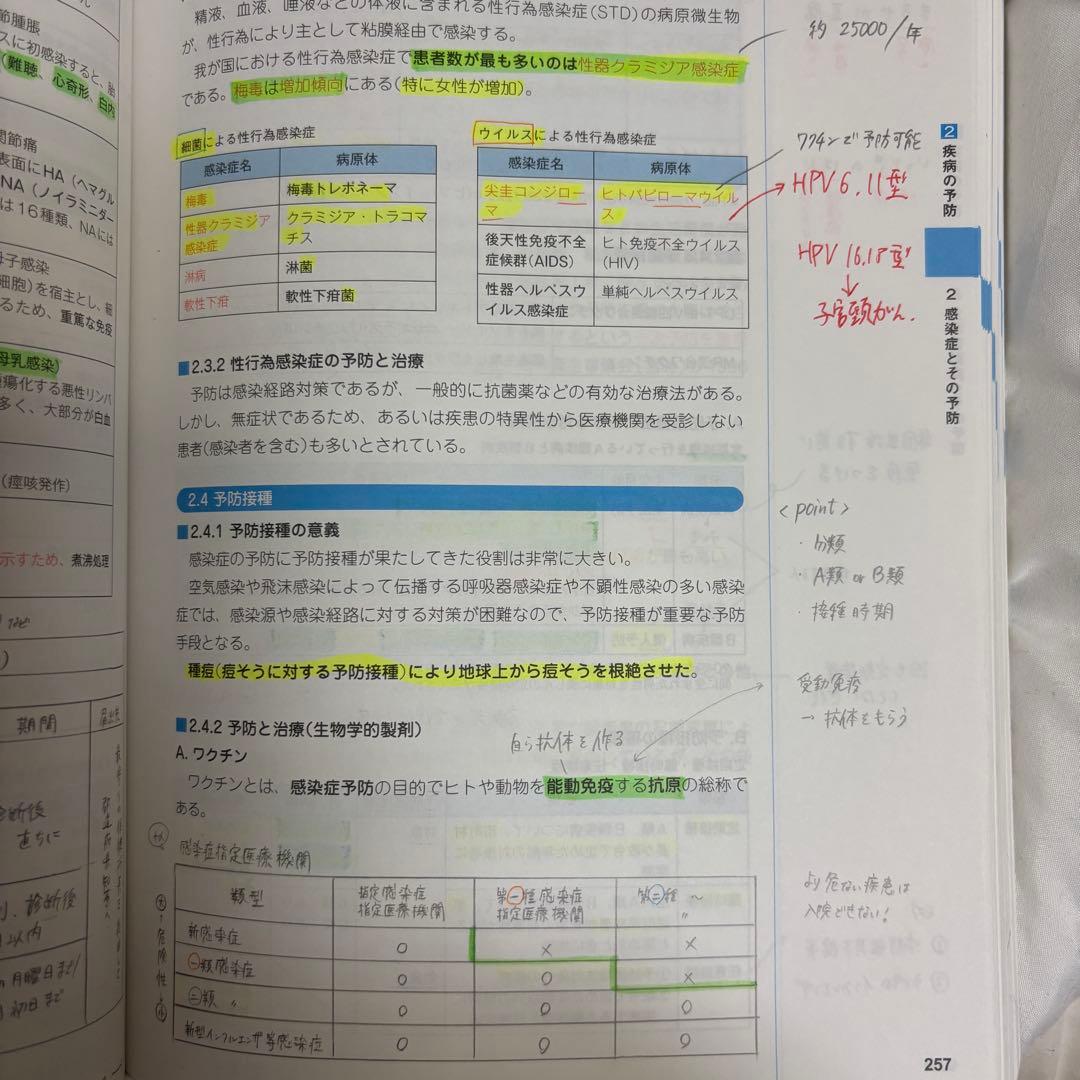 精液、血液、唾液などの体液に含まれる性行為感染症(STD)の病原微生物
が、性行為により主として粘膜経由で感染する。
我が国における性行為感染症で患者数が最も多いのは性器クラミジア感染症
である。梅毒は増加傾向にある(特に女性が増加)。
約 25000/年
細菌による性行為感染症
感染症名 病原体
梅毒 梅毒トレポネーマ
性器クラミジア クラミジア・トラコマ
感染症 チス
淋病 淋菌
軟性下疳 軟性下疳菌
ウイルスによる性行為感染症
感染症名 病原体
尖圭コンジロー ヒトパピローマウイル
マ ス
後天性免疫不全 ヒト免疫不全ウイルス
症候群(AIDS) (HIV)
性器ヘルペスウ 単純ヘルペスウイルス
イルス感染症
ワクチンで予防可能
HPV 6.11型
HPV 16.18型
↓
子宮頸がん.
2 疾病の予防
2 感染症とその予防
2.3.2 性行為感染症の予防と治療
予防は感染経路対策であるが、一般的に抗菌薬などの有効な治療法がある。
しかし、無症状であるため、あるいは疾患の特異性から医療機関を受診しない
患者(感染者を含む)も多いとされている。
2.4 予防接種
2.4.1 予防接種の意義
感染症の予防に予防接種が果たしてきた役割は非常に大きい。
空気感染や飛沫感染によって伝播する呼吸器感染症や不顕性感染の多い感染
症では、感染源や感染経路に対する対策が困難なので、予防接種が重要な予防
手段となる。
種痘(痘そうに対する予防接種)により地球上から痘そうを根絶させた。
<point>
・分類
・A類 or B類
・接種時期
受動免疫
→ 抗体をもらう
2.4.2 予防と治療(生物学的製剤)
自ら抗体を作る
A. ワクチン
ワクチンとは、感染症予防の目的でヒトや動物を能動免疫する抗原の総称で
ある。
感染症指定医療機関
類型 指定感染症 第一種感染症 第二種 〜
指定医療機関 指定医療機関 〃
新感染症 ○ × ×
一類感染症 ○ ○ ×
二類 〃 ○ ○ ○
新型インフルエンザ等感染症 ○ ○ ○
大↑危険性↓小
より危ない疾患は
入院できない!
257
節腫脹
スに初感染すると、胎
(難聴、心奇形、白内
関節痛
表面にHA(ヘマグル
NA(ノイラミニダー
は16種類、NAには
母子感染
細胞)を宿主とし、細
るため、重篤な免疫
母乳感染)
腫瘍化する悪性リンパ
多く、大部分が白血
(痙咳発作)
示すため、煮沸処理
など
期間
診断後
直ちに
診断後
以内
月曜日まで/
初日まで